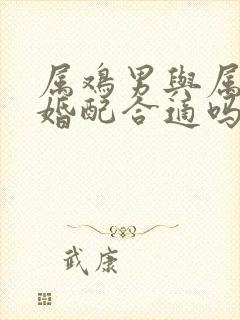 属鸡男與属
婚配合適吗
武康